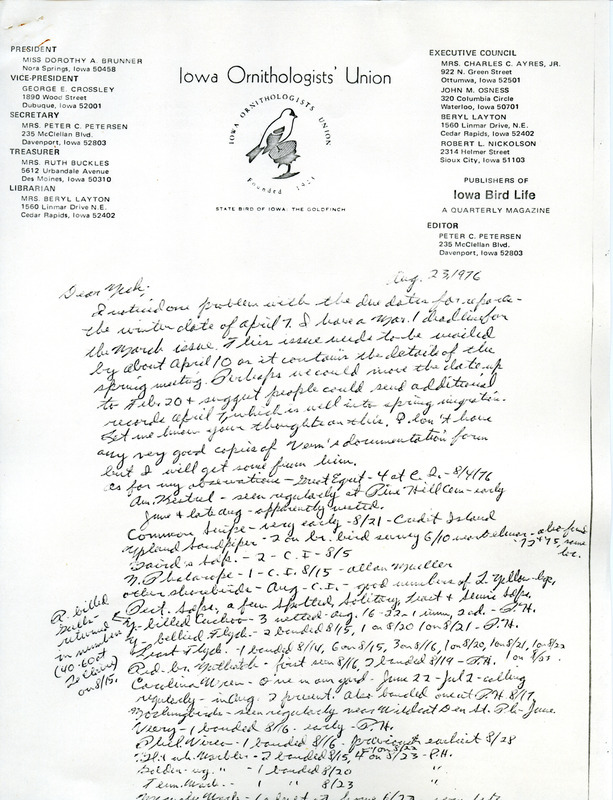 PRESIDENT
MISS DOROTHY A. BRUNNER
Nora Springs, Iowa 50458
VICE-PRESIDENT
GEORGE E. CROSSLEY
1890 Wood Street
Dubuque, Iowa 52001
SECRETARY
MRS. PETER C. PETERSEN
235 McClellan Blvd.
Davenport, Iowa 52803
TREASURER
MRS. RUTH BUCKLES
5612 Urbandale Avenue
Des Moines, Iowa 50310
LIBRARIAN
MRS. BERYL LAYTON
1560 Linmar Drive N.E.
Cedar Rapids, Iowa 52402
Iowa Ornithologists' Union
IOWA ORNITHOLOGISTS UNION
Founded 1923
STATE BIRD OF IOWA: THE GOLDFINCH
EXECUTIVE COUNCIL
MRS. CHARLES C. AYRES, JR.
922 N. Green Street
Ottumwa, Iowa 52501
JOHN M. OSNESS
320 Columbia Circle
Waterloo, Iowa 50701
BERYL LAYTON
1560 Linmar Drive, N.E.
Cedar Rapids, Iowa 52402
ROBERT L. NICKOLSON
2314 Helmer Street
Sioux City, Iowa 51103
PUBLISHERS OF
Iowa Bird Life
A QUARTERLY MAGAZINE
EDITOR
PETER C. PETERSEN
235 McClellan Blvd.
Davenport, Iowa 52803
Aug. 23, 1976
Dear Nick,
I noticed one problem with the due dates for reports-
the winter date of April 7. I have a Mar. 1 deadline for
the March issue. This issue needs to be mailed
by about April 10 as it contains the details of the
spring meeting. Perhaps we could move the date up
to Feb. 20 + suggest people could send additional
records April 7, which is well into spring migration.
Let me know your thoughts on this. I don't have
any very good copies of Vern's documentation form
but I will get some from him.
As for my observations - Great Egret - 4 at C.I. - 8/4/76
Am. Kestrel - seen regularly at Pine Hill Cem - early
June + late Aug - apparently nested.
Common Snipe - very early - 8/21 - Credit Island
Upland Sandpiper - 2 on br. bird survey 6/10 - also
74 + 75, same
loc.
Baird's Sdp. - 2 - C.I. - 8/5
N. Phalarope - 1 - C.I. 8/15 - Allan Mueller
Other shorebirds - Aug - C.I. - good numbers of L. Yellow-legs,
Pect. Sdps, a few Spotted, Solitary, Least + Semis Sdps.
R. billed
Gulls -
returned
in numbers
(40-60 at
on 8/15.
Y-billed Cuckoo - 3 netted - Aug. 16-22 - 1 imm, 2 ad. - P.H.
Y-bellied Flych. - 2 banded 8/15, 1 on 8/20 1 on 8/21 - P.H.
Least Flych. - 1 banded 8/14, 6 on 8/15, 3 on 8/16, 1 on 8/20, 1 on 8/21, 1 on 8/22
Red-br. Nuthatch - first seen 8/16, 2 banded 8/19 - P.H. 1 on 8/21
Carolina Wren - One in our yard - June 22 - Jul 2 - calling
regularly - in Aug. 2 present. Also banded one at P.H. 8/17.
Mockingbirds - seen regularly near Wildcat Den St. Pk - June.
Veery - 1 banded 8/16 - early - P.H.
Phil. Vireo - 1 banded 8/16 - previous earliest 8/28
- 2 banded 8/15, 4 on 8/23 - P.H.
1 on 8/22
Golden-wg. " - 1 banded 8/20
Tenn. Warb. - 1 " 8/23 "